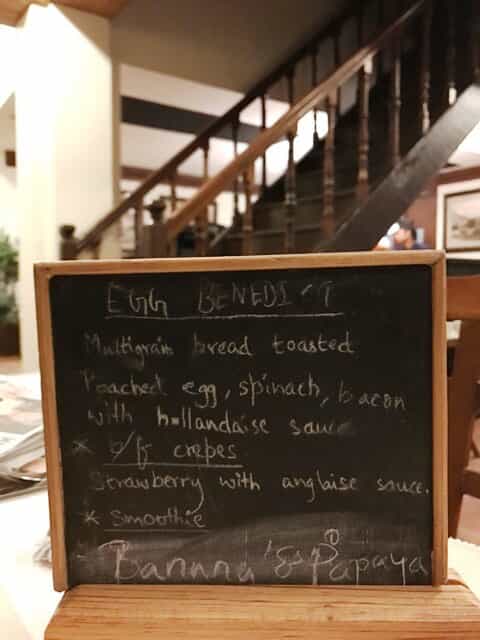 EGG BENEDICT
Multigrain bread toasted
Poached egg, spinach, bacon
with hollandaise sauce
* crepes
Strawberry with anglaise sauce.
* Smoothie
Banana & Papaya